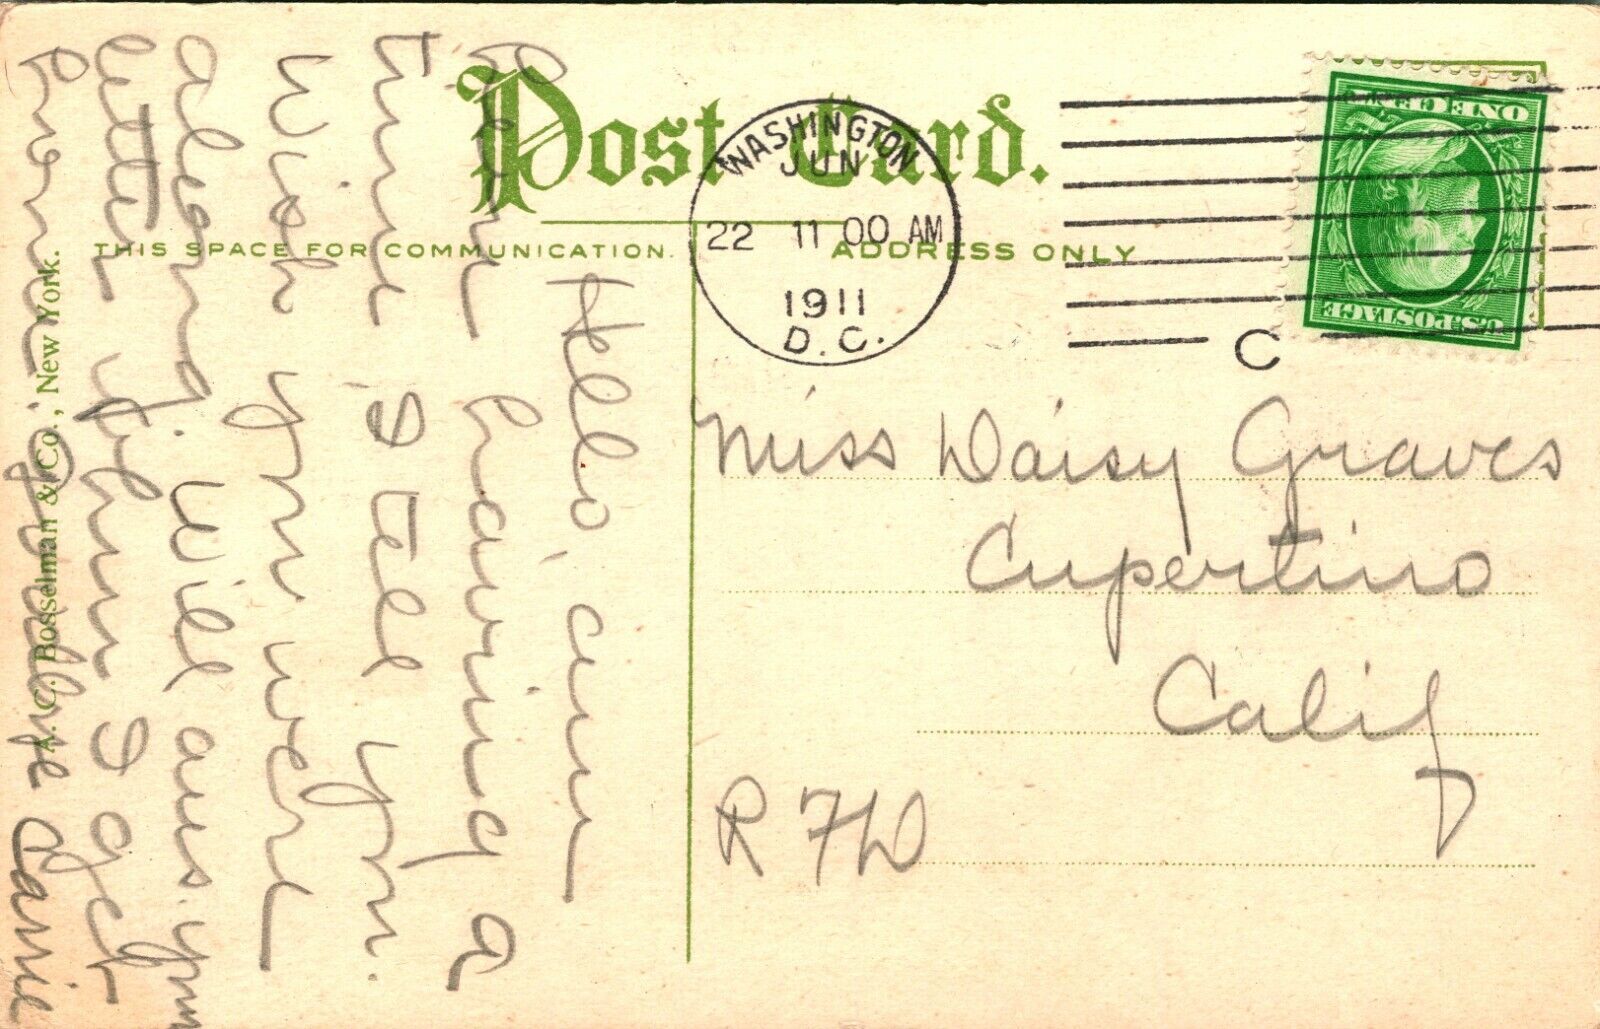 Post Card.
THIS SPACE FOR COMMUNICATION.
ADDRESS ONLY
WASHINGTON
JUN
22 11 00 AM
1911
D.C.
C
ONE CENT
U.S. POSTAGE
Hello, am
having a
time I tell you.
Wish you were
along. Will ans. your
letter when I get
home. Goodbye Carrie
Miss Daisy Graves
Cupertino
Calif
R F D
A. C. Bosselman & Co., New York.